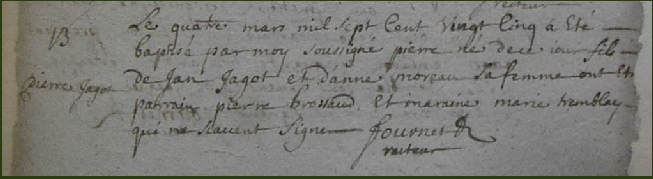 recteur
13
Le quatre mars mil sept Cent vingt Cinq à Eté
baptisé par moy soussigné pierre né de ce iour fils
Pierre Jagot
de Jan Jagot et d'anne moreau sa femme ont Eté
parrain pierre brossaud Et maraine marie tremblay
qui ne scavent signer fournet R
recteur